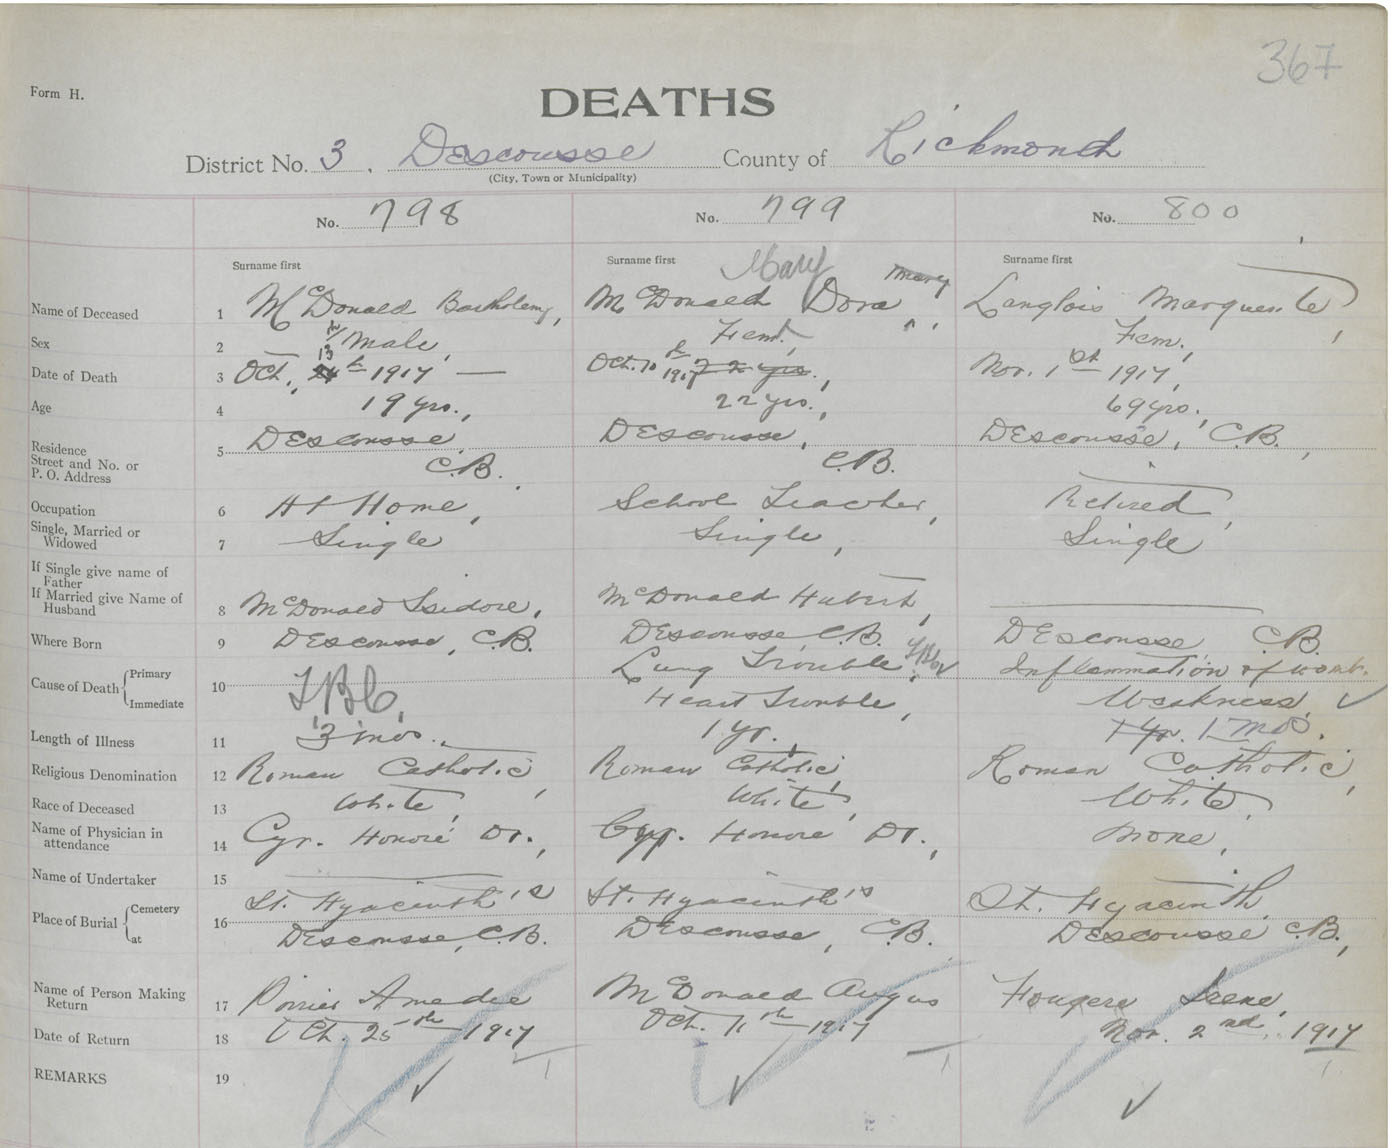 367
Form H.
DEATHS
District No. 3, Descousse County of Richmond
(City, Town or Municipality)
No. 798 No. 799 No. 800
Surname first Surname first Mary Surname first
Name of Deceased 1 McDonald Bartholemy, McDonald Dora Mary, Langlois Marguerite,
Sex 2 Male, Fem., Fem.,
Date of Death 3 Oct., 13th 24th 1917 — Oct. 10th 1917 22 yrs., Nov. 1st 1917,
Age 4 19 yrs., 22 yrs., 69 yrs.,
Residence
Street and No. or
P. O. Address
5 Descousse, C.B. Descousse, C.B. Descousse, C.B.,
Occupation 6 At Home, School Teacher, Retired,
Single, Married or
Widowed
7 Single Single, Single
If Single give name of
Father
If Married give Name of
Husband
8 McDonald Isidore, McDonald Hubert,
Where Born 9 Descousse, C.B. Descousse C.B. Descousse C.B.
Cause of Death Primary Immediate 10
TBC, Lung Trouble, Inflammation of womb.
Heart Trouble, Weakness,
Length of Illness 11 3 mos., 1 yr. 1 yr. 1 mos.
Religious Denomination 12 Roman Catholic, Roman Catholic, Roman Catholic,
Race of Deceased 13 White, White, White,
Name of Physician in
attendance
14 Cyr. Honoré Dr., Cyr. Honore Dr., None,
Name of Undertaker 15
Place of Burial Cemetery at 16
St. Hyacinth's St. Hyacinth's St. Hyacinth,
Descousse, C.B. Descousse, C.B. Descousse C.B.,
Name of Person Making
Return
17 Poirier Amedie McDonald Angus Fougere Irene,
Date of Return 18 Oct. 25th 1917 Oct. 11th 1917 Nov. 2nd, 1917
REMARKS 19